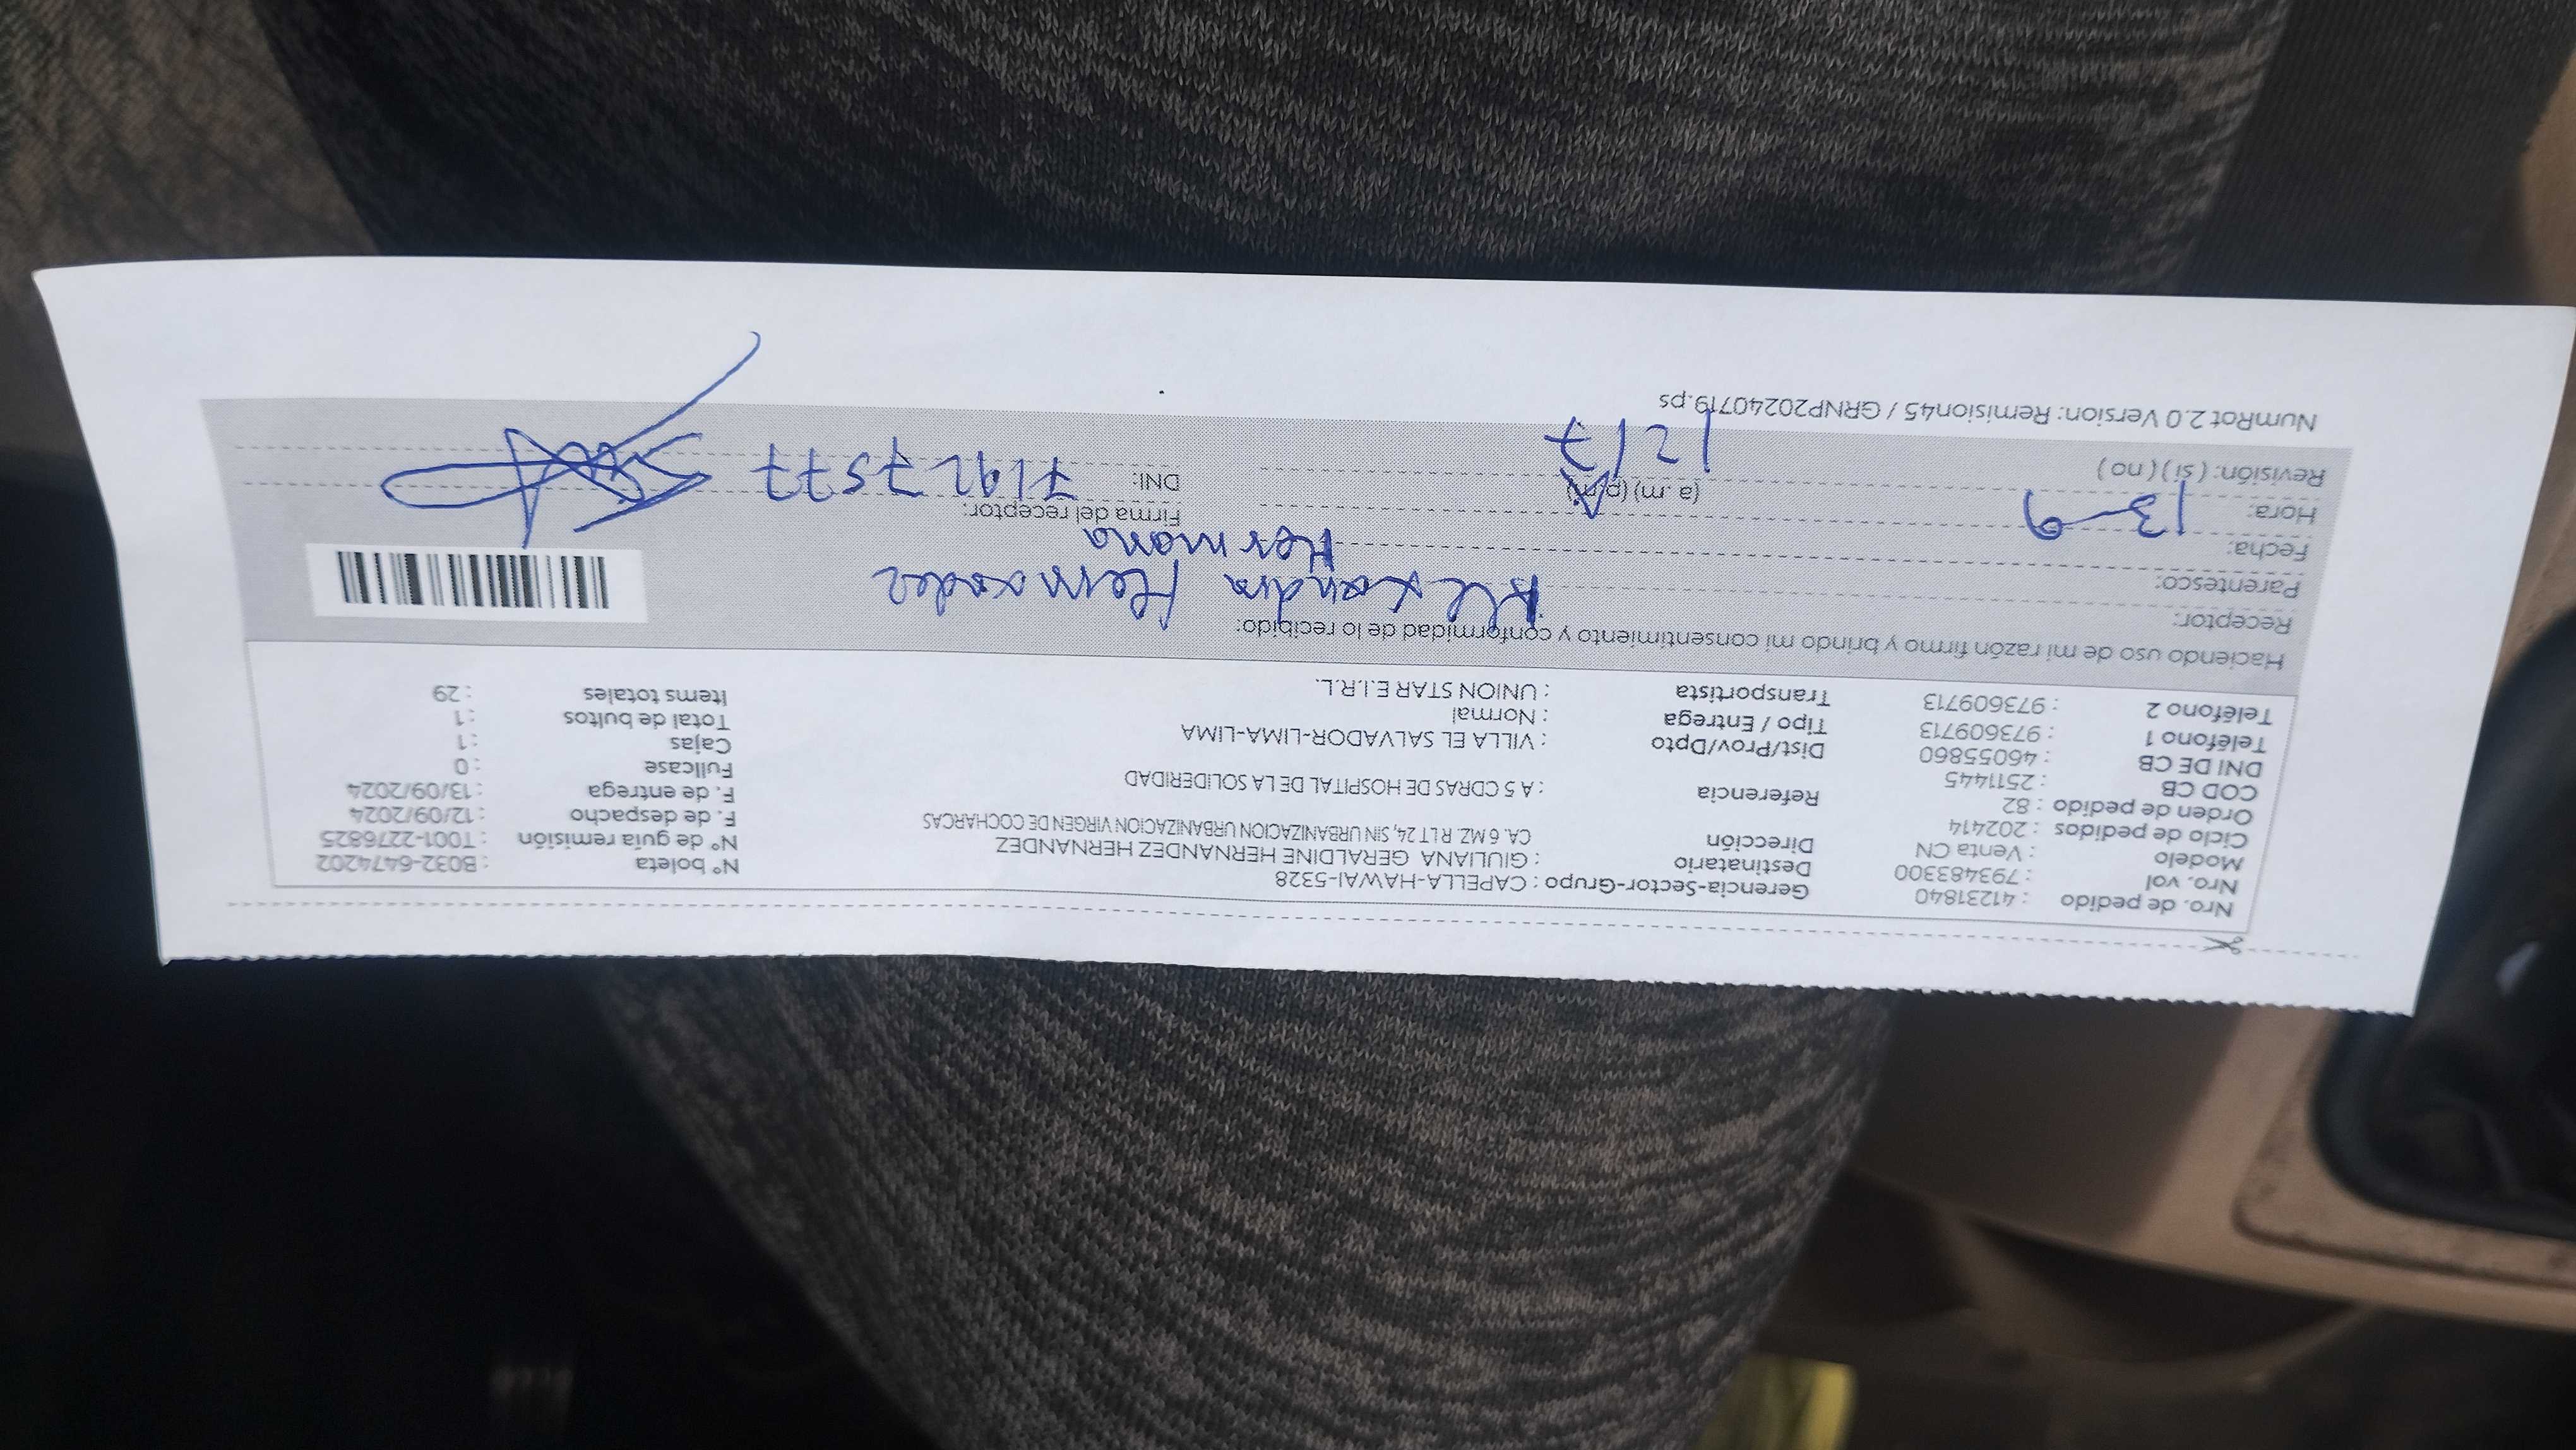 Nro. de pedido : 41231840 Gerencia-Sector-Grupo : CAPELLA-HAWAI-5328 N° boleta : B032-6474202
Nro. vol : 793483300 Destinatario : GIULIANA GERALDINE HERNANDEZ HERNANDEZ N° de guía remisión : T001-2276825
Modelo : Venta CN Dirección CA. 6 MZ. R LT 24, SIN URBANIZACION URBANIZACION VIRGEN DE COCHARCAS F. de despacho : 12/09/2024
Ciclo de pedidos : 202414 F. de entrega : 13/09/2024
Orden de pedido : 82 Referencia : A 5 CDRAS DE HOSPITAL DE LA SOLIDERIDAD Fullcase : 0
COD CB : 2511445 Cajas : 1
DNI DE CB : 46055860 Dist/Prov/Dpto : VILLA EL SALVADOR-LIMA-LIMA Total de bultos : 1
Teléfono 1 : 973609713 Tipo / Entrega : Normal Items totales : 29
Teléfono 2 : 973609713 Transportista : UNION STAR E.I.R.L.
Haciendo uso de mi razón firmo y brindo mi consentimiento y conformidad de lo recibido:
Receptor: Alexandra Hernandez
Parentesco: Hermana
Fecha: 13-9 Firma del receptor:
Hora: 1217 (a.m) (p.m) DNI: 71927577
Revisión: ( si ) ( no )
NumRot 2.0 Version: Remision45 / GRNP20240719.ps